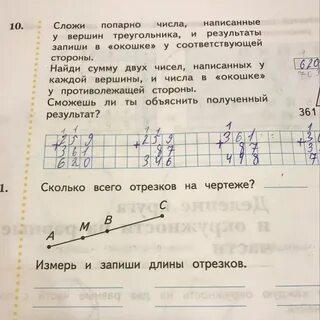 10. Сложи попарно числа, написанные
у вершин треугольника, и результаты
запиши в «окошке» у соответствующей
стороны.
Найди сумму двух чисел, написанных у
каждой вершины, и числа в «окошке»
у противолежащей стороны.
Сможешь ли ты объяснить полученный
результат?
620
361
+259 +259 +361
361 87 87
620 346 448
1. Сколько всего отрезков на чертеже?
A M B C
Измерь и запиши длины отрезков.